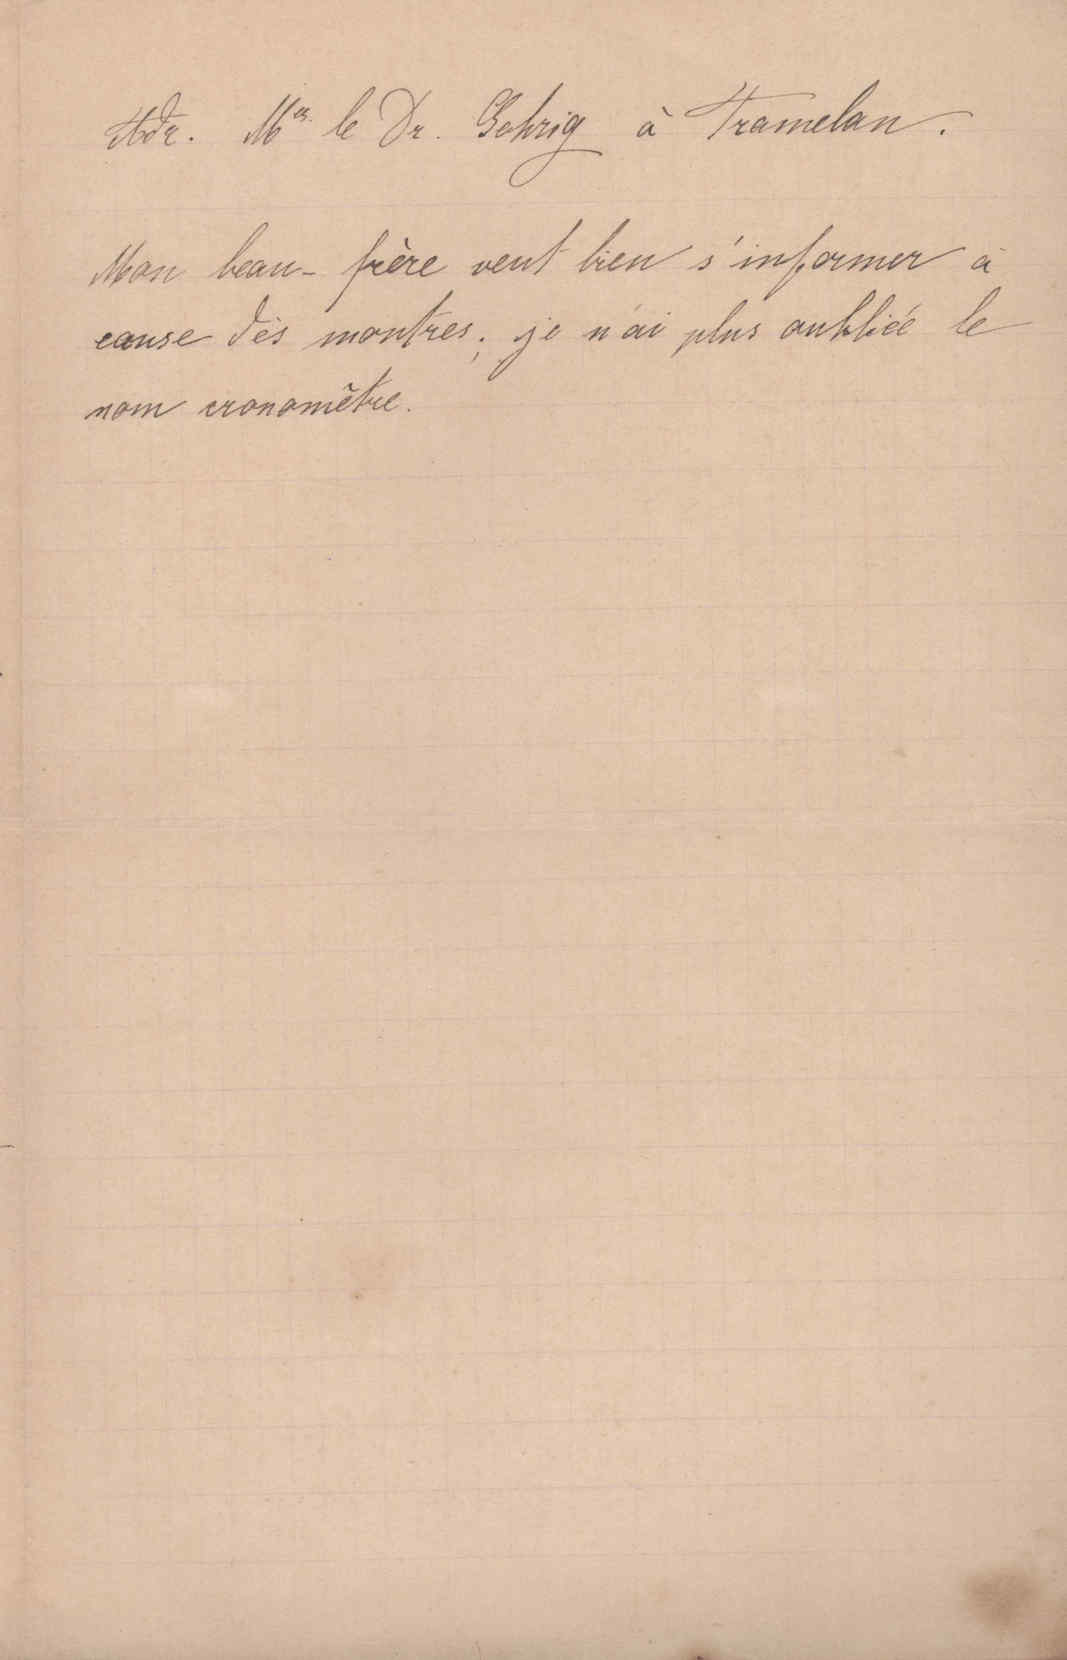 Adr. Mr. le Dr. Gehrig à Tramelan.
Mon beau-frère veut bien s'informer à
cause dès montres; je n'ai plus oubliée le
nom cronomêtre.